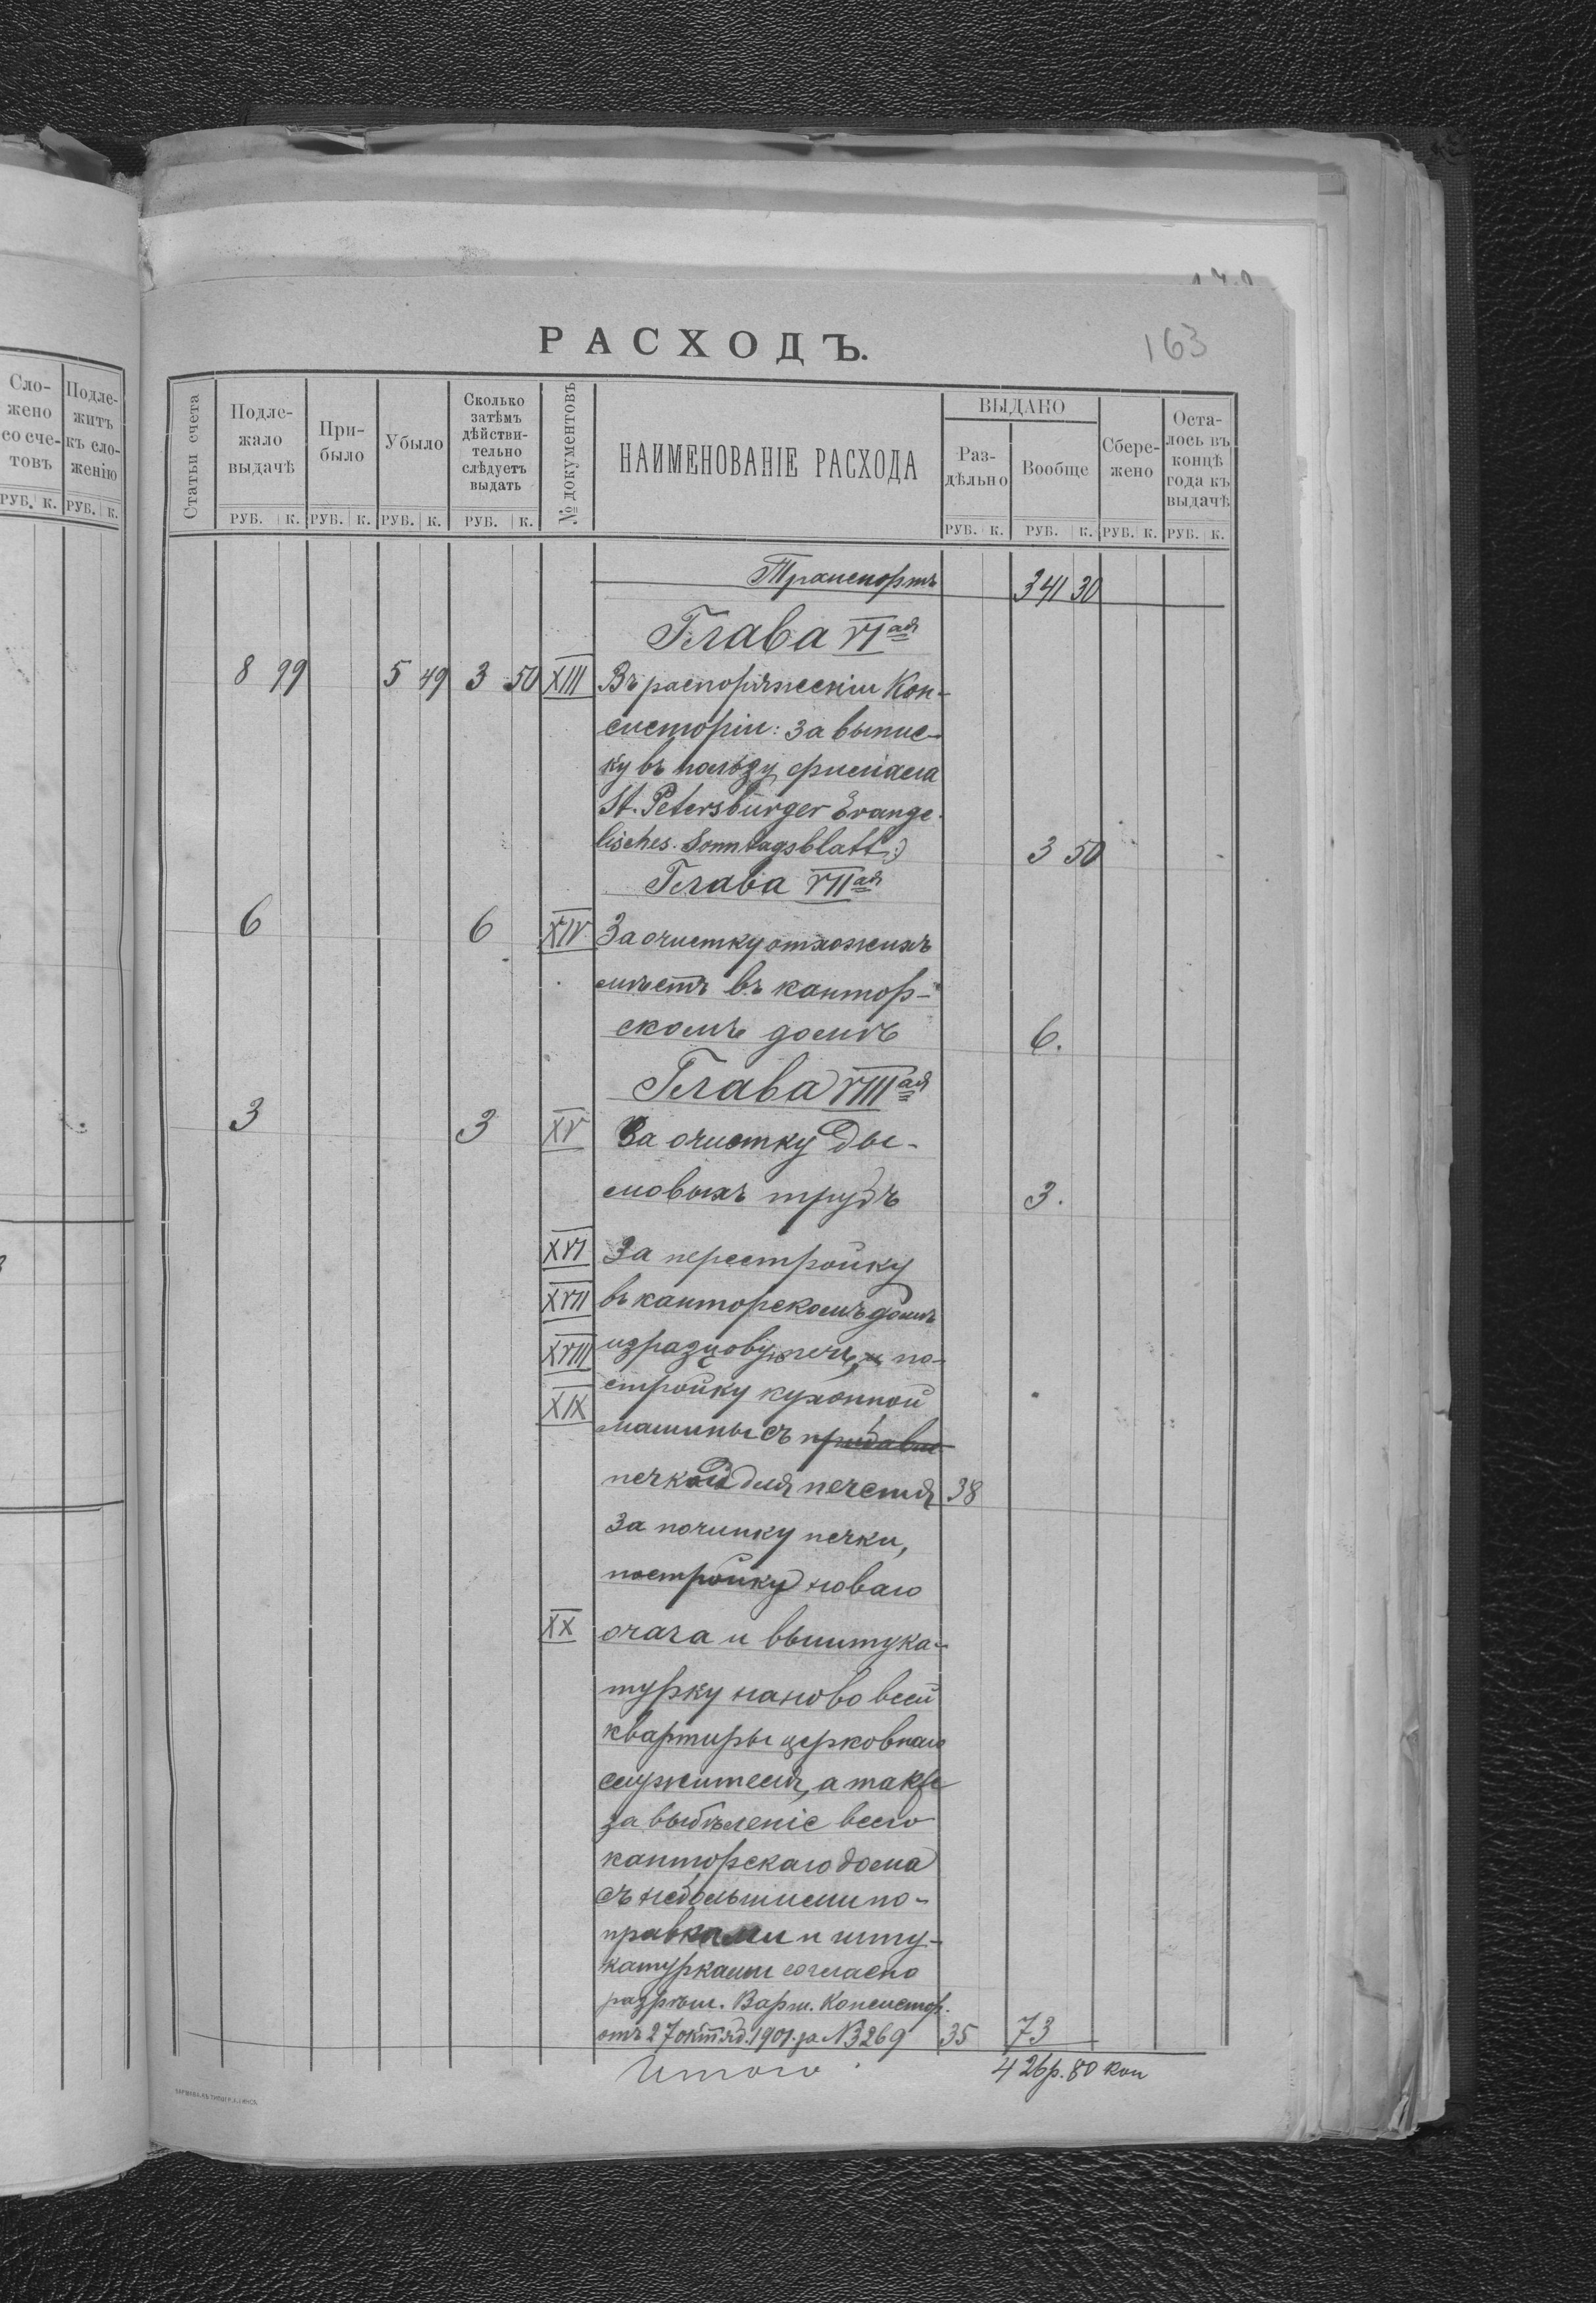 РАСХОДЪ.
163
Сло-
жено
со сче-
товъ
Подле-
житъ
къ сло-
женію
РУБ. К. РУБ. К.
Статьи счета
Подле-
жало
выдачѣ
При-
было
Убыло
Сколько
затѣмъ
дѣйстви-
тельно
слѣдуетъ
выдать
№ документовъ
НАИМЕНОВАНІЕ РАСХОДА
ВЫДАНО
Раз-
дѣльно
Вообще
Сбере-
жено
Оста-
лось въ
концѣ
года къ
выдачѣ
РУБ. К. РУБ. К. РУБ. К. РУБ. К. РУБ. К. РУБ. К. РУБ. К. РУБ. К.
Транспортъ 341 30
Глава VIая
8 99 5 49 3 50 XIII Въ распоряженіи Кон-
систоріи: за выпис-
ку въ пользу филіала
St. Petersburger Evange-
lisches Sonntagsblatt:) 3 50
Глава VIIая
6 6 XIV За очистку отхожихъ
мѣстъ въ кантор-
скомъ домѣ 6.
Глава VIIIая
3 3 XV За очистку ды-
мовыхъ трубъ 3.
XVI За перестройку
XVII въ канторскомъ домѣ
XVIII изразцовую печь, и по-
стройку кухонной
XIX машины съ
печкой для печенія 38
За починку печки,
постройку новаго
XX очага и выштука-
турку наново всей
квартиры церковнаго
служителя, а также
за выбѣленіе всего
канторскаго дома
съ небольшими по-
правками и шту-
катурками согласно
разрѣш. Варш. Консистор.
отъ 27 октяб. 1901 за №3269 35 73
Итого 426р. 80 коп